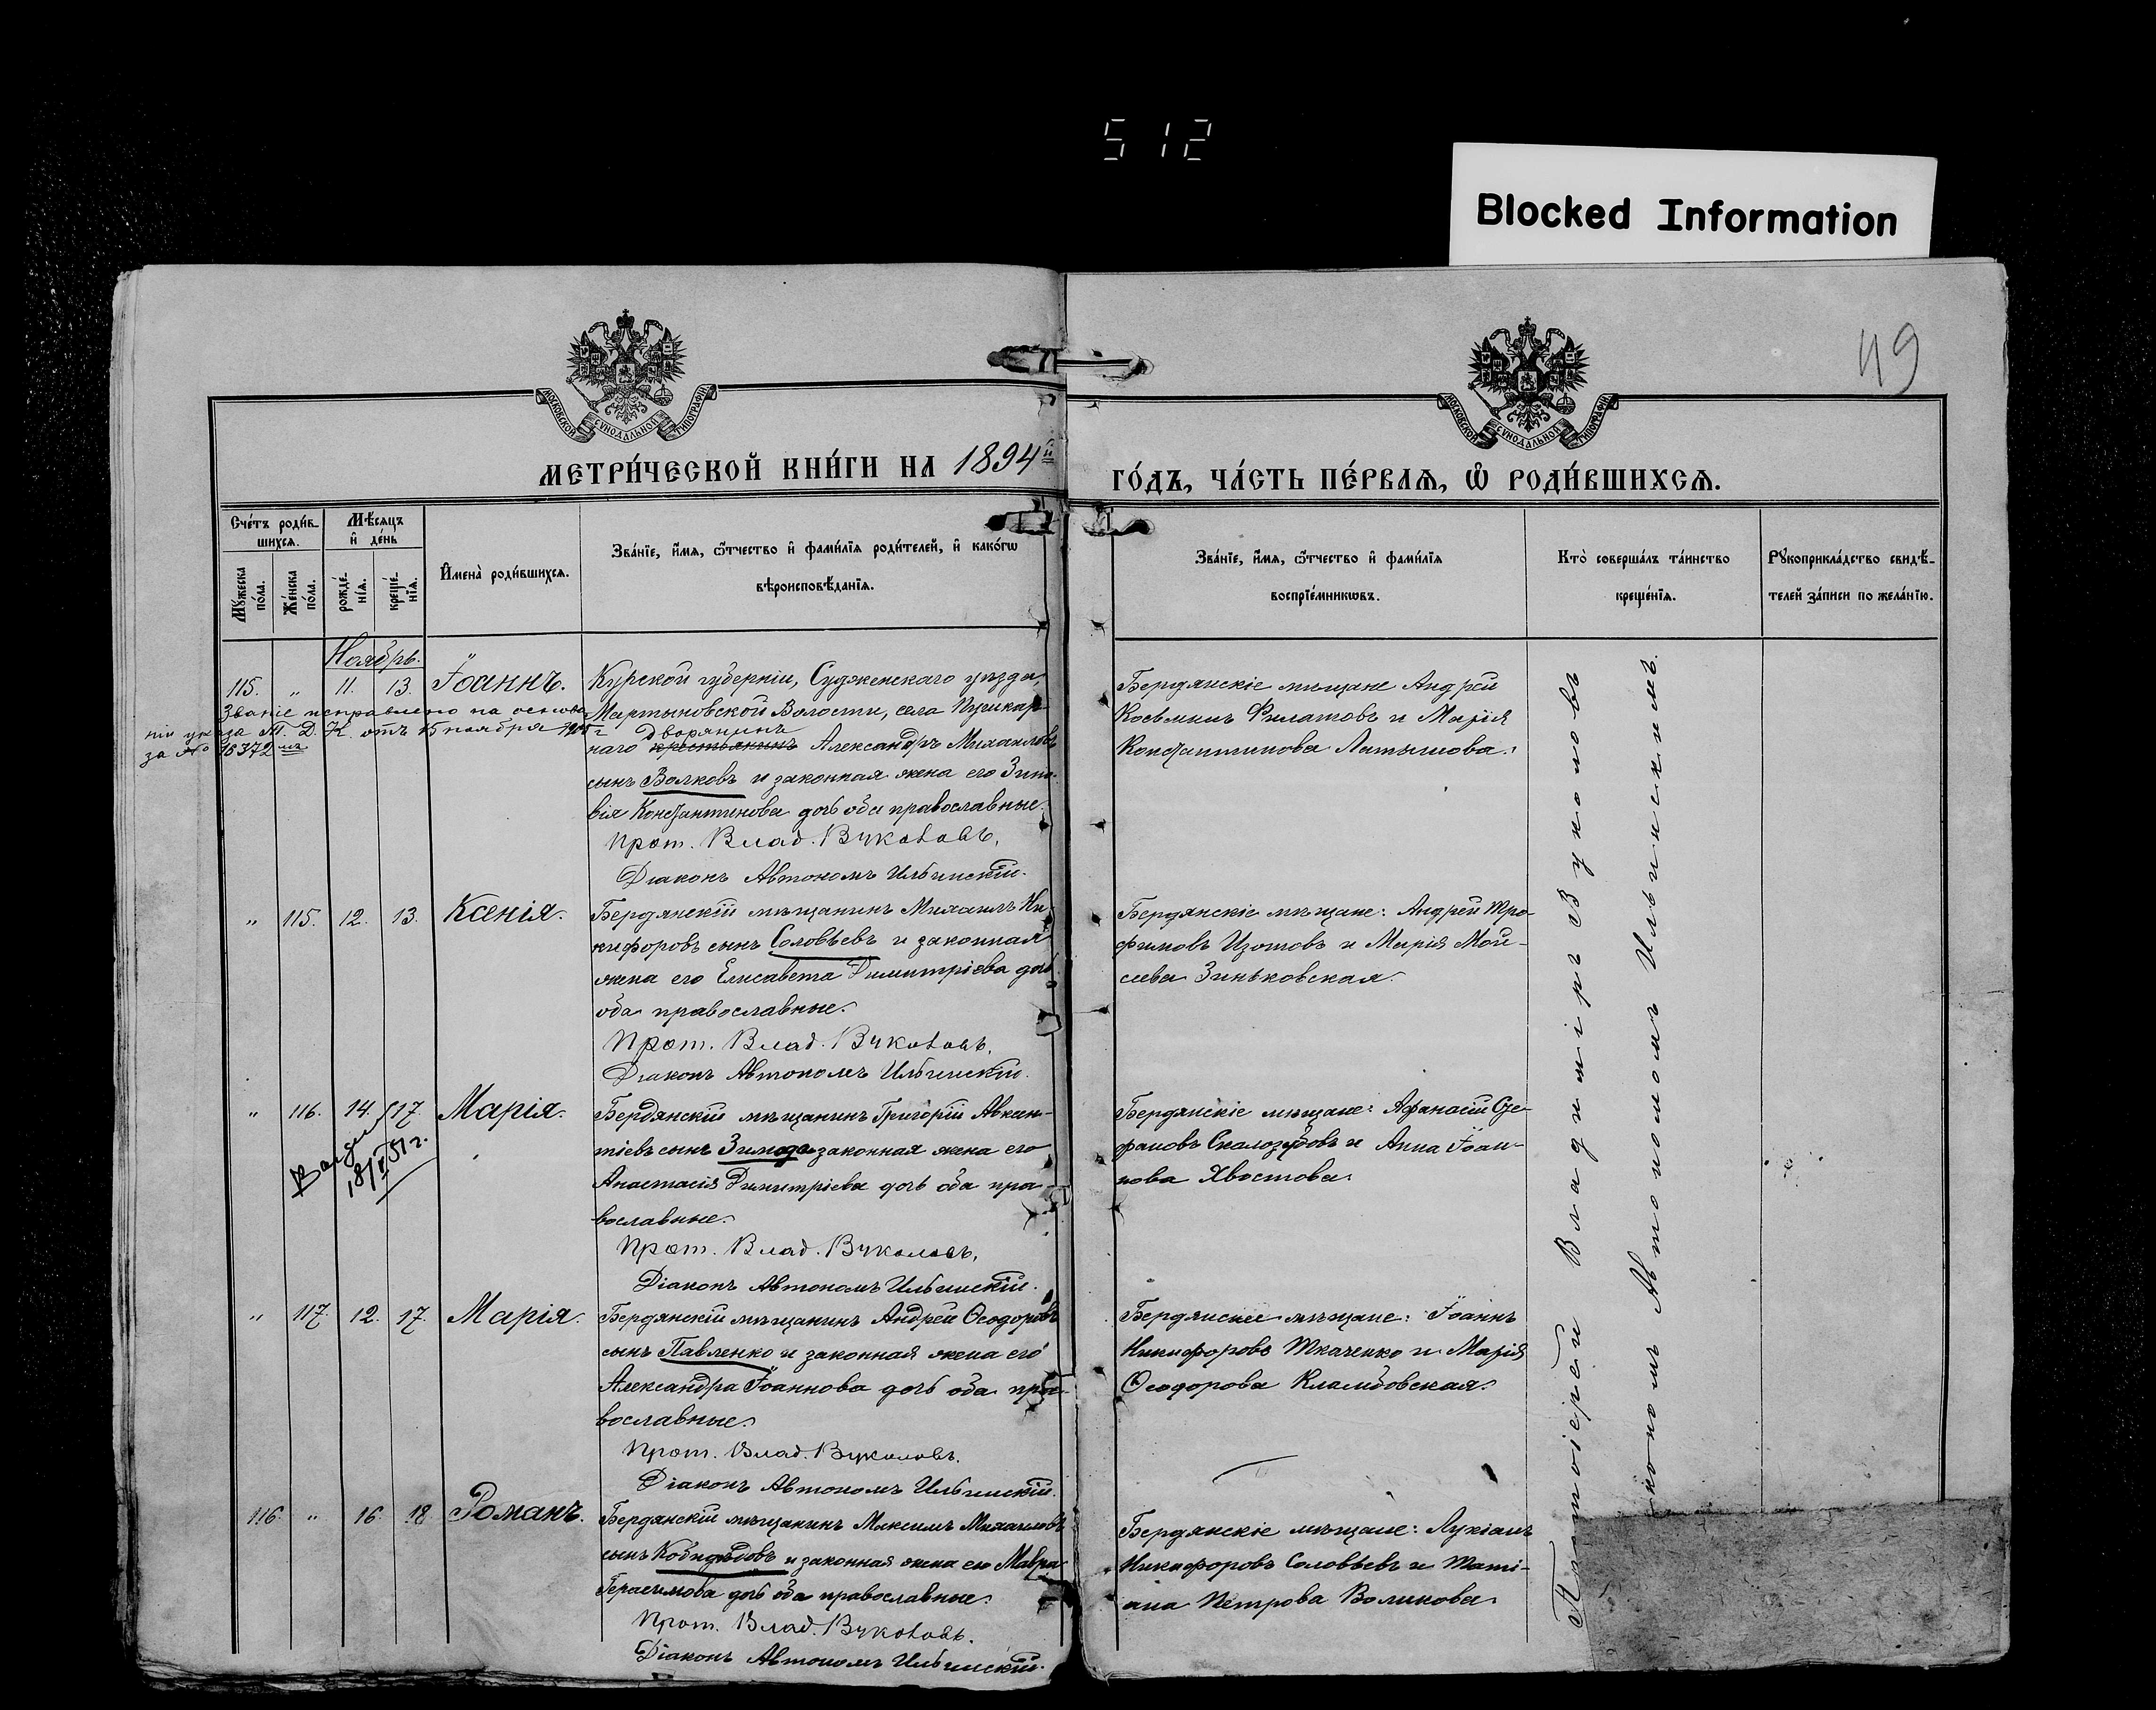 512
Blocked Information
49
МОСКОВСКОЙ СУНОДАЛЬНОЙ ТИПОГРАФІИ
МОСКОВСКОЙ СУНОДАЛЬНОЙ ТИПОГРАФІИ
МЕТРИ́ЧЕСКОЙ КНИ́ГИ НА 1894й
ГО́ДЪ, ЧА́СТЬ ПЕ́РВАЯ, Ѽ РОДИ́ВШИХСЯ.
Сче́тъ роди́в-
шихся.
Мѣ́сяцъ
и҆ де́нь
Мꙋ́жеска
по́ла.
Же́нска
по́ла.
рожде́-
нїя.
креще́-
нїя.
И҆мена̀ роди́вшихся.
Зва́нїе, и҆́мя, ѻ҆́тчество и҆ фами́лїя роди́телей, и҆ како́гѡ
вѣроисповѣ́данїя.
Зва́нїе, и҆́мя, ѻ҆́тчество и҆ фами́лїя
воспрїе́мникѡвъ.
Кто̀ соверша́лъ та́инство
креще́нїя.
Рꙋкоприкла́дство свидѣ́-
телей за́писи по жела́нїю.
Ноябрь.
115. " 11. 13. Іоаннъ.
Званіе исправлено на основа-
ніи указа Т. Д. К. отъ 15 ноября 1905 г.
за № 16372мъ
Курской губерніи, Судженскаго уѣзда,
Мартыновской Волости, села Пушкар-
дворянинъ
наго крестьянинъ Александръ Михаиловъ
сынъ Волковъ и законная жена его Зино-
вія Константинова дочь оба православные.
Прот. Влад. Вуколовъ.
Діаконъ Автономъ Ильинскій.
Бердянскіе мѣщане Андрей
Косьминъ Филатовъ и Марія
Константинова Латышова.
" 115. 12. 13. Ксенія.
Бердянскій мѣщанинъ Михаилъ Ни-
кифоровъ сынъ Соловьевъ и законная
жена его Елисавета Димитріева дочь
оба православные.
Прот. Влад. Вуколовъ.
Діаконъ Автономъ Ильинскій.
Бердянскіе мѣщане: Андрей Тро-
фимовъ Изотовъ и Марія Мой-
сеева Зиньковская.
" 116. 14. 17. Марія.
18/ 51 г.
Бердянскій мѣщанинъ Григорій Авксен-
тіевъ сынъ Зимода законная жена его
Анастасія Димитріева дочь оба пра-
вославные.
Прот. Влад. Вуколовъ.
Діаконъ Автономъ Ильинскій.
Бердянскіе мѣщане: Афанасій Сте-
фановъ Скалозубовъ и Анна Іоан-
нова Хвостова.
" 117. 12. 17. Марія.
Бердянскій мѣщанинъ Андрей Ѳеодоровъ
сынъ Павленко и законная жена его
Александра Іоаннова дочь оба пра-
вославные.
Прот. Влад. Вуколовъ.
Діаконъ Автономъ Ильинскій.
Бердянскіе мѣщане: Іоаннъ
Никифоровъ Ткаченко и Марія
Ѳеодорова
116. " 16. 18. Романъ.
Бердянскій мѣщанинъ Максимъ Михаиловъ
сынъ и законная жена его Мавра
Герасимова дочь оба православные.
Прот. Влад. Вуколовъ.
Діаконъ Автономъ Ильинскій.
Бердянскіе мѣщане: Лукіанъ
Никифоровъ Соловьевъ и Таті-
ана Петрова Воликова.
Протоіерей Владиміръ Вуколовъ
кономъ Автономомъ Ильинскимъ.